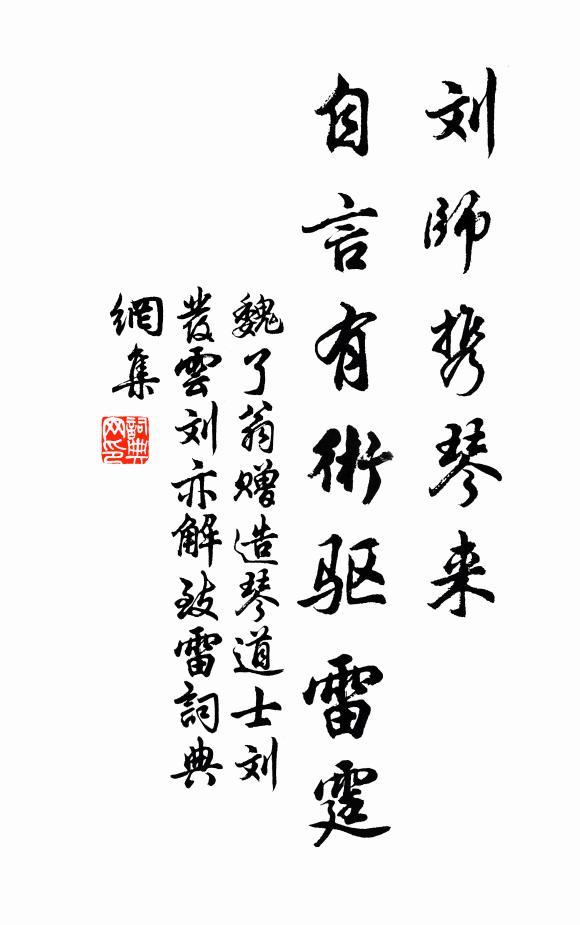 刘師携琴来
自言有術驱雷霆
魏了翁赠造琴道士刘
發雲刘亦解致雷詞典
網集
詞典
网印